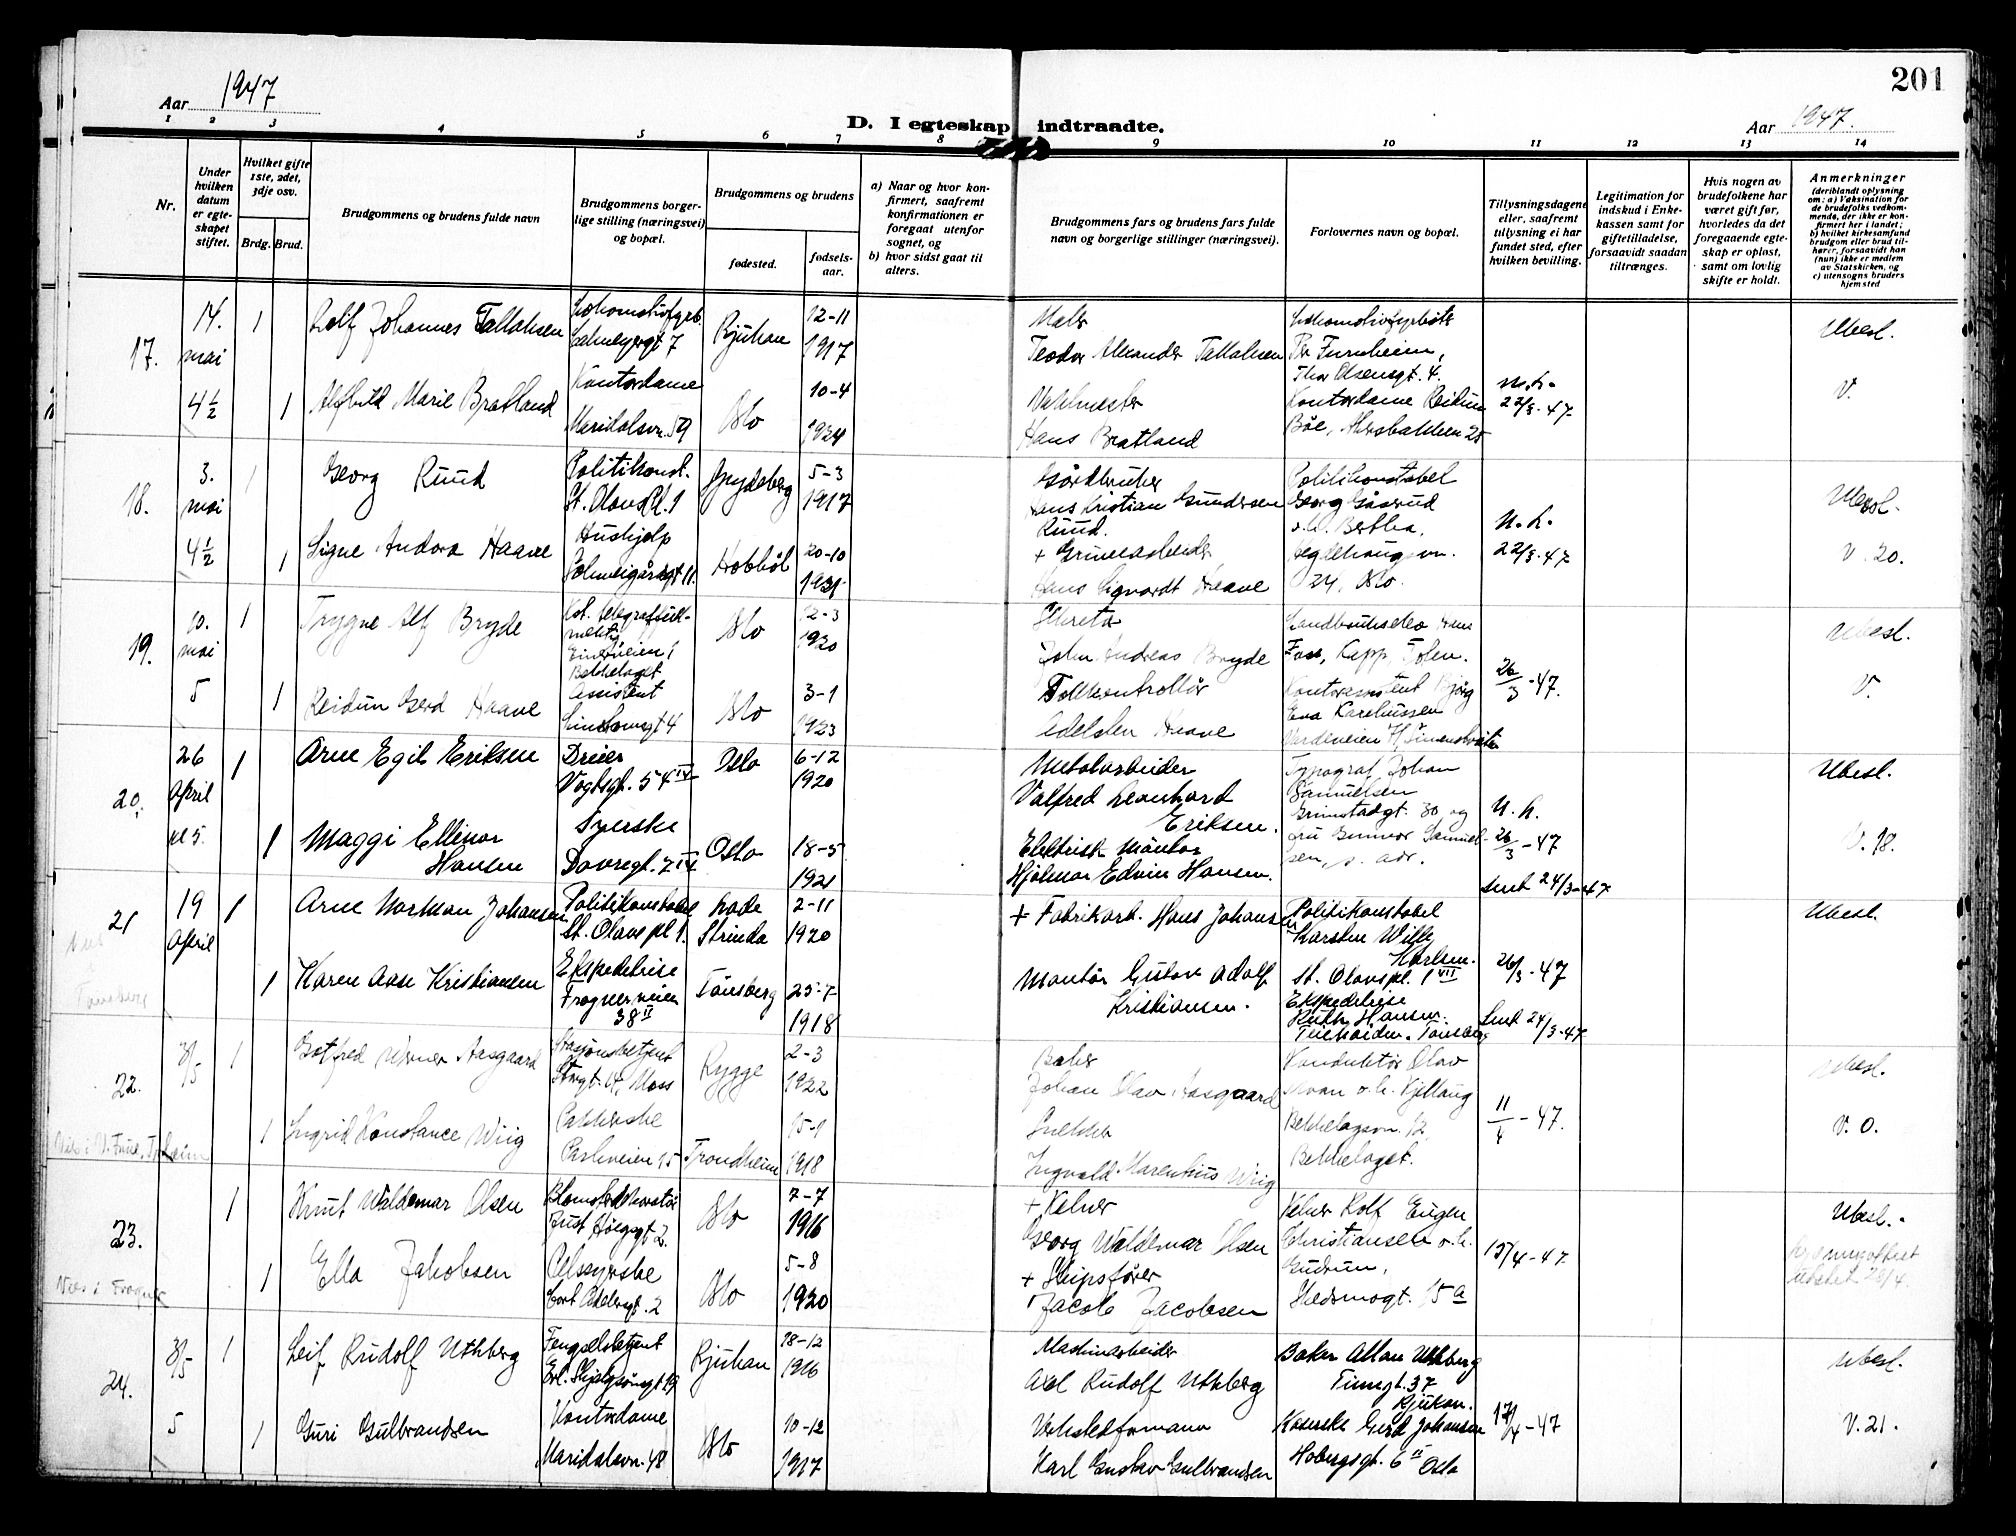 201
Aar 1947
Aar 1947.
D. I egteskap indtraadte.
1 2 3 4 5 6 7 8 9 10 11 12 13 14
Nr.
Under hvilken datum er egteskapet stiftet.
Hvilket gifte 1ste, 2det, 3dje osv.
Brdg. Brud.
Brudgommens og brudens fulde navn
Brudgommens borgerlige stilling (næringsvei) og bopæl.
Brudgommens og brudens
fødested.
fødselsaar.
a) Naar og hvor konfirmert, saafremt konfirmationen er foregaat utenfor sognet, og
b) hvor sidst gaat til alters.
Brudgommens fars og brudens fars fulde navn og borgerlige stillinger (næringsvei).
Forlovernes navn og bopæl.
Tillysningsdagene eller, saafremt tillysning ei har fundet sted, efter hvilken bevilling.
Legitimation for indskud i Enkekassen samt for giftetilladelse, forsaavidt saadan tiltrænges.
Hvis nogen av brudefolkene har været gift før, hvorledes da det foregaaende egteskap er opløst, samt om lovlig skifte er holdt.
Anmerkninger
(deriblandt oplysning om: a) Vaksination for de brudefolks vedkommende, der ikke er konfirmert her i landet; b) hvilket kirkesamfund brudgom eller brud tilhører, forsaavidt han (hun) ikke er medlem av Statskirken, og c) utensogns bruders hjemsted
17. 14. mai 4 1/2
1 Rolf Johannes Tallaksen
Rjukan 12-11 1917
Maler
Teodor Alexander Tallaksen
Per Furuheim,
Thor Olsensgt. 4.
Ubesl.
1 Alfhild Marie Bratland
Kontordame
Maridalsvn. 59
Oslo 10-4 1924
Vaktmester
Hans Bratland
Kontordame Reidun
Bøe, Akersbakken 25
22/3-47
V.
18. 3. mai 4 1/2
1 Georg Ruud
Politikonst.
St. Olavs Pl. 1
Spydeberg 5-3 1917
Gårdbruker
Hans Kristian Gundersen
Ruud.
Politikonstabel
Georg Gåsrud
Ubesl.
1 Signe Andora Haave
Hushjelp
Hobbøl 20-10 1921
+ Grubearbeider
Hans Sigvardt Haave
Hegdehaugsvn.
24, Oslo.
22/3-47
V. 20.
19. 10. mai 5
1 Trygve Alf Bryde
Bekkelaget
Oslo 12-3 1920
John Andreas Bryde
Foss, Kapp, Toten.
Ubesl.
1 Reidun Gerd Haave
Assistent
Oslo 3-1 1923
Tollkontrollør
Adelsten Haave
Kontorassistent Bjørg
Eva Kareliussen
26/3-47.
V.
20. 26 April kl 5.
1 Arne Egil Eriksen
Dreier
Vogtsgt. 54 IV
Oslo 6-12 1920
Metalarbeider
Valfred Leonhard
Eriksen.
Typograf Johan
Samuelsen
Grimstadgt. 30 og
Ubesl.
1 Maggi Ellinor
Hansen
Syerske
Dovregt. 7 IV
Oslo 18-5 1921
Elektrisk Montør
Hjalmar Edvin Hansen.
fru Gunvor Samuelsen, s. adr.
26/3-47
V. 18.
21 19 April
1 Arne Norman Johansen
Politikonstabel
St. Olavs pl 1.
Lade
Strinda
2-11 1920
+ Fabrikarb. Hans Johansen
Politikonstabel
Karsten Willy
Karlsen.
St. Olavs pl. 1 VII
Sendt 24/3-47
Ubesl.
1 Karen Aase Kristiansen
Ekspeditrise
Frognerveien
38 II
Tønsberg 25-7 1918
Montør Gustav Adolf
Kristiansen.
Ekspeditrise
Ruth Hansen.
Teieheiden. Tønsberg
26/3-47
Sendt 24/3-47
22. 3/5
1 Gotfred Werner Aasgaard
Stasjonsbetjent
Moss
Rygge 2-3 1922
Baker
Johan Olav Aasgaard
Konduktør Olav
Ubesl.
1 Ingrid Konstance Wiig
Pakkerske
Parkveien 15
Trondheim 15-1 1918
Snekker
Ingvald Marenthius Wiig
Bekkelagsvn. 12,
Bekkelaget.
11/4-47.
V. 0.
23.
Vies i Frogner
1 Knut Waldemar Olsen
Oslo 7-7 1916
+ Kelner
Georg Waldemar Olsen
Kelner Rolf Eugen
Christiansen o. h.
Gudrun,
Hedsmogt. 15a
15/4-47.
Ubesl.
1 Ella Jakobsen
Pelssyerske
Cort Adelersgt. 2
Oslo 5-8 1920
+ Skipsfører
Jacob Jacobsen
24. 3/5 5
1 Leif Rudolf Uthberg
Fengselsbetjent
Erl. Skjalgsønsgt 19
Rjukan 18-12 1916
Maskinarbeider
Axel Rudolf Uthberg
Baker Allan Uthberg
Tinngt. 37
Rjukan.
Ubesl.
1 Guri Gulbrandsen
Kontordame
Maridalsvn. 48
Oslo 10-12 1917
Verkstedformann
Karl Gustav Gulbrandsen
Gerd Johansen
Hobergsgt. 6 II Oslo
17/4-47
V. 21.